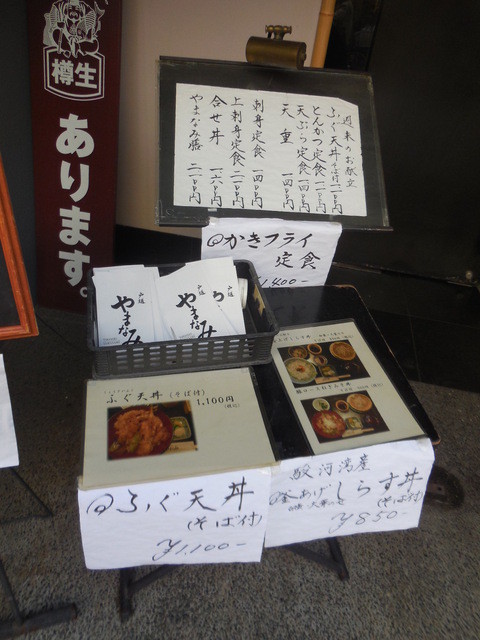 樽生
あります。
週末のお献立
ふぐ天丼 そば付 一一〇〇円
とんかつ定食 一一〇〇円
天ぷら定食 一四〇〇円
天重 一四〇〇円
刺身定食 一四〇〇円
上刺身定食 二一〇〇円
合せ丼 一六〇〇円
やまなみ膳 二一〇〇円
@かきフライ
定食
1,400-
戸塚
やまなみ
戸塚
やまなみ
ふぐ天丼 (そば付)
1,100円
@ふぐ天丼
(そば付)
¥1,100-
駿河湾産
@釜あげしらす丼
(そば付)
¥850-